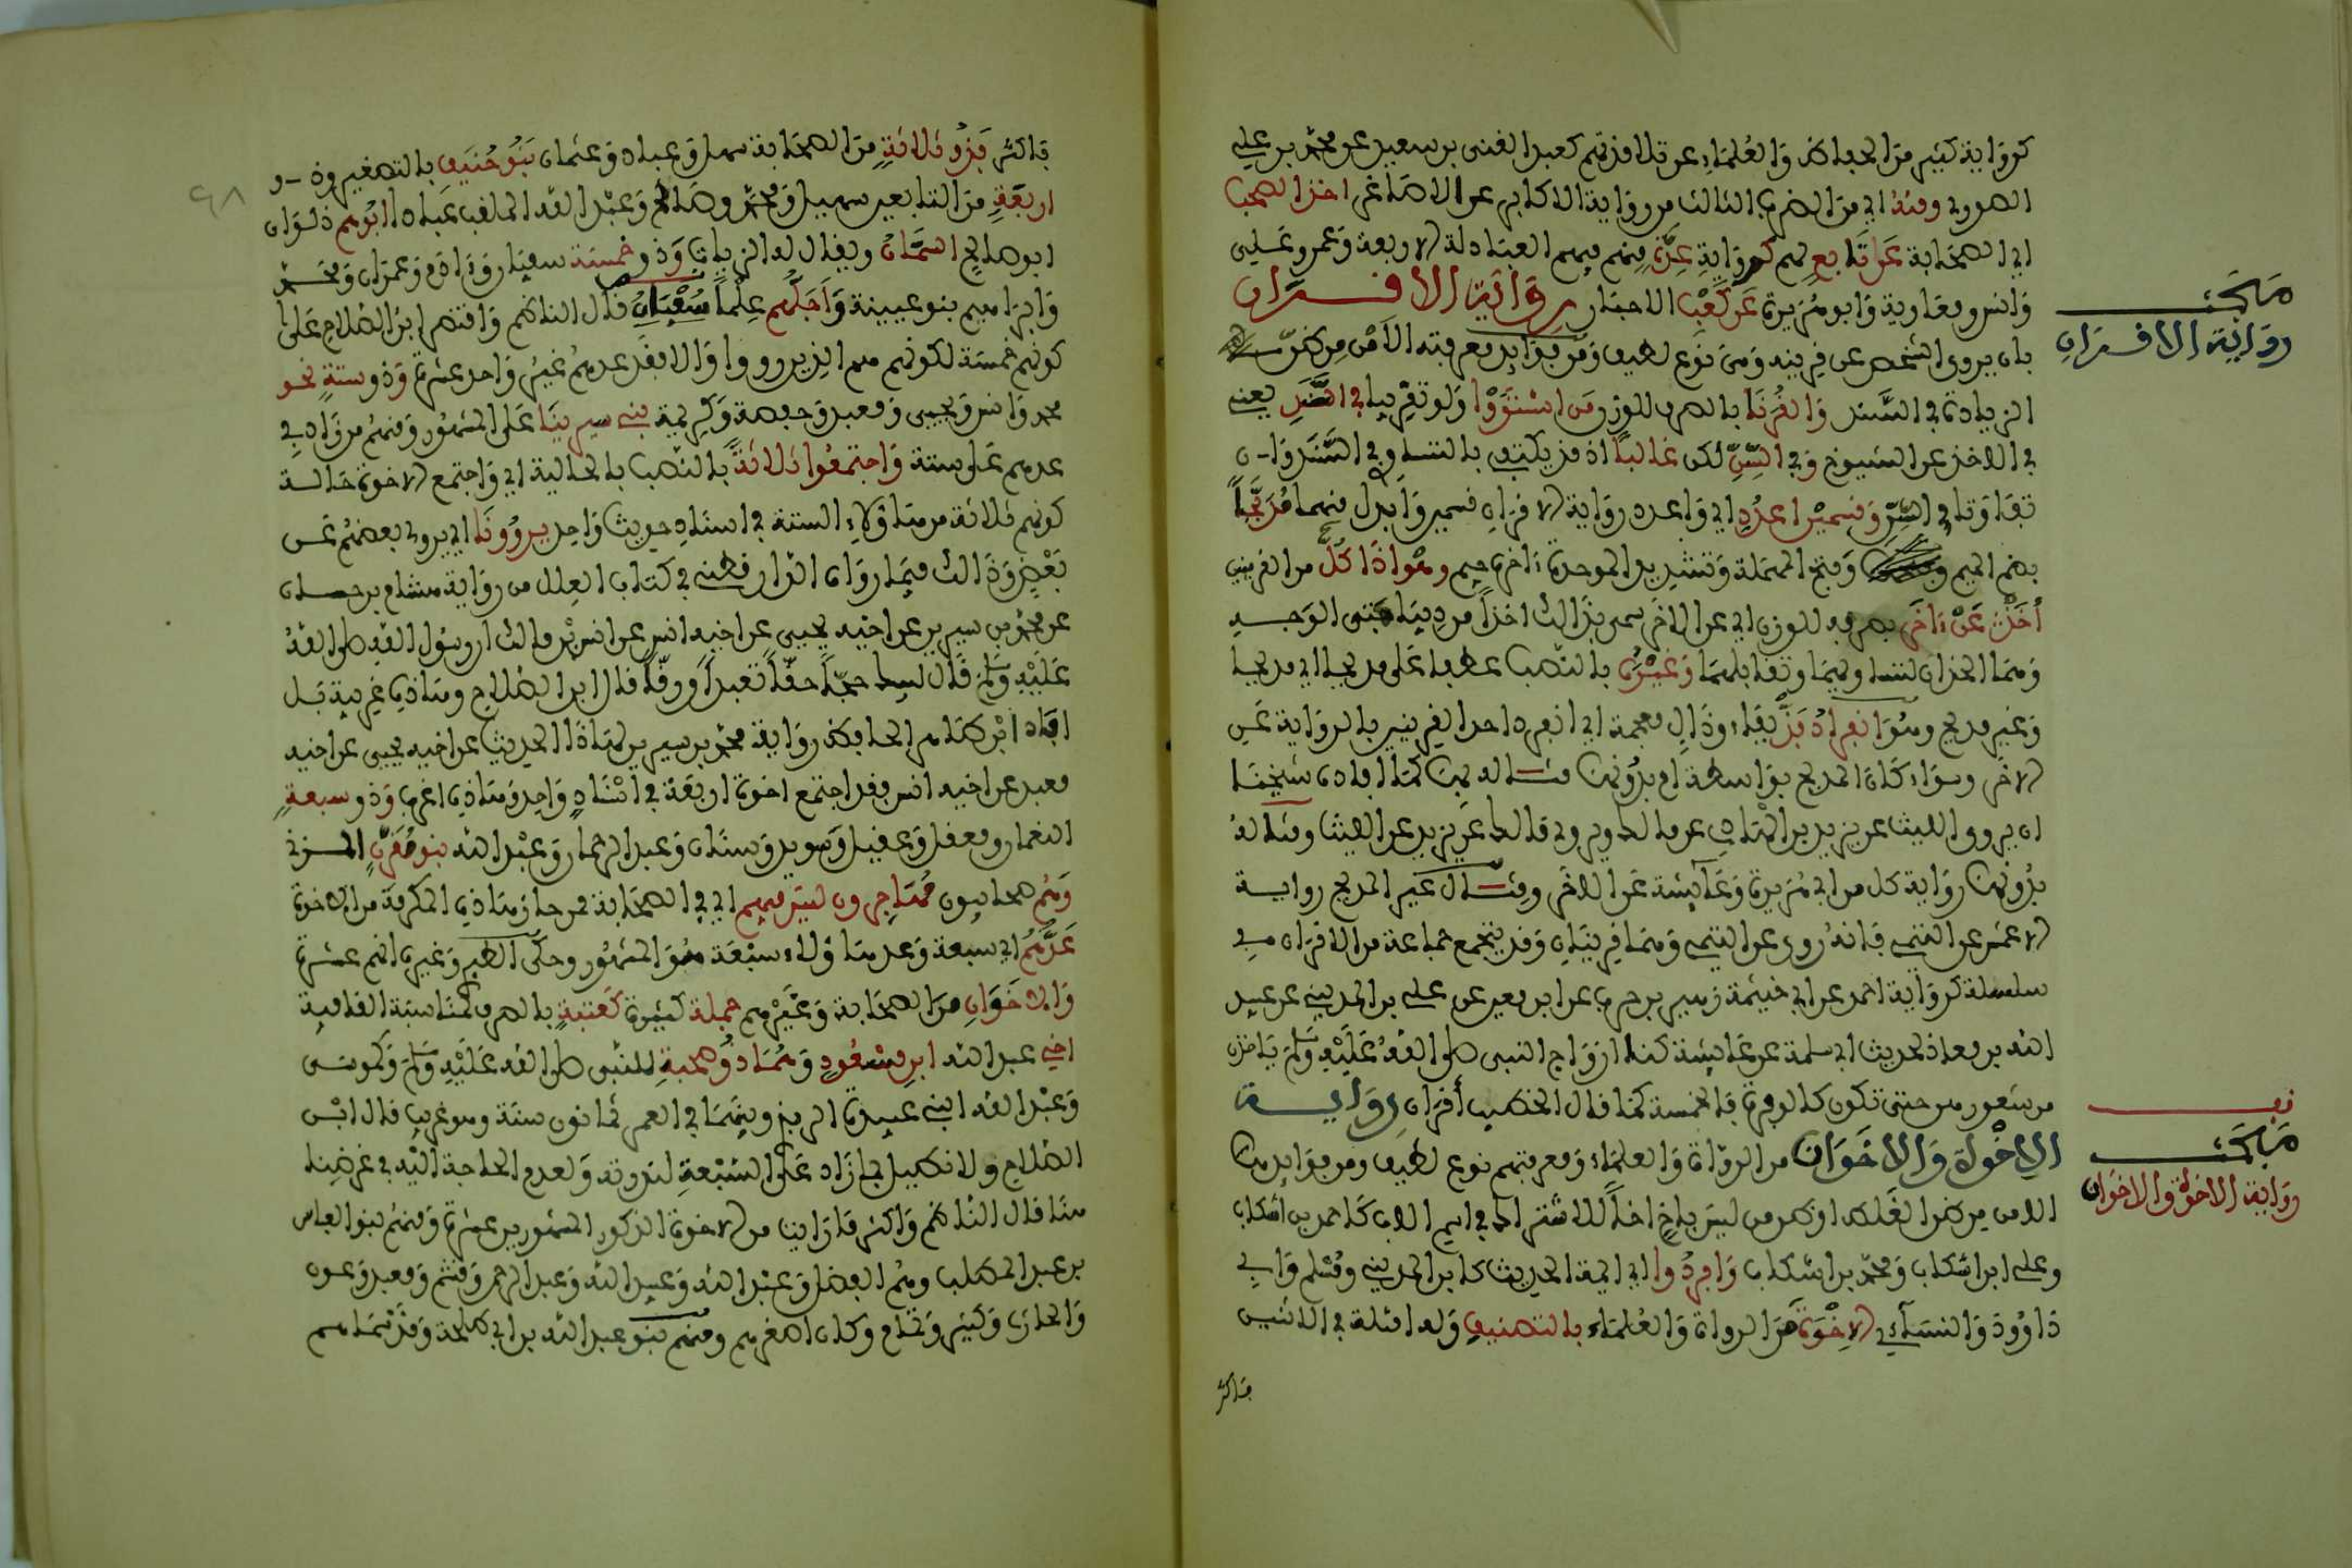 كرواية كثير من الحفاظ والعلماء عن تلامذتهم كعبد الغني بن سعيد عن محمد بن علي
الصوري ومنه أي من الضرب الثالث من رواية الأكابر عن الأصاغر أخذ الصحب
أي الصحابة عن تابع لهم كرواية عدة منهم فيهم العبادلة الأربعة وعمر وعلي
وأنس ومعاوية وأبو هريرة عن كعب الأحبار رواية الأقران
مبحث
رواية الأقران
بأن يروي الشخص عن قرينه وهي نوع لطيف ومن فوائد معرفته الأمن من ظن
الزيادة في السند والقرنا بالصرف للوزن من استووا ولو تقريبا في السند يعني
في الأخذ عن الشيوخ وفي السن لكن غالبا إذ قد يكتفي بالتساوي في السند وإن
تفاوتا في السن وقسمين اعدد أي واعدد رواية الأقران قسمين وابدل منهما مدبجا
بضم الميم وفتح المهملة وتشديد الموحدة آخره جيم وهو إذا كل من القرينين
أخذ عن آخر بصرفه للوزن أي عن الآخر سمي بذلك أخذا من ديباجتي الوجه
وهما الخدان لتساويهما وتقابلهما وغيره بالنصب عطفا على مدبجا أي مدبجا
وغير مدبج وهو انفراد فذ بفاء وذال معجمة أي انفرد أحد القرينين بالرواية عن
الآخر وسواء كان المدبج بواسطة أم بدونها مثاله بها كما أفاده شيخنا
أن يروي الليث عن يزيد بن الهاد عن مالك ويروي مالك عن يزيد عن الليث ومثاله
بدونها رواية كل من أبي هريرة وعائشة عن الآخر ومثال غير المدبج رواية
الأعمش عن التيمي فإنه روى عن التيمي وهما قرينان وقد يجتمع جماعة من الأقران في
سلسلة كرواية أحمد عن أبي خيثمة زهير بن حرب عن ابن معين عن علي بن المديني عن عبيد
الله بن معاذ لحديث أبي سلمة عن عائشة كنا أزواج النبي صلى الله عليه وسلم يأخذن
من شعورهن حتى تكون كالوفرة فالخمسة كما قال الخطيب أقران رواية
قف
مبحث
رواية الإخوة والأخوات
الإخوة والأخوات من الرواة والعلماء ومعرفتهم نوع لطيف ومن فوائدها
الأمن من ظن الغلط أو ظن من ليس بأخ أخا للاشتراك في اسم الأب كأحمد بن اشكاب
وعلي ابن اشكاب ومحمد بن اشكاب وافردوا أي أئمة الحديث كابن المديني ومسلم وأبي
داوود والنسائي الإخوة من الرواة والعلماء بالتصنيف وله أمثلة في الاثنين
فأكثر
٩٨
فأكثر فذو ثلاثة من الصحابة سهل وعباد وعثمان بنو حنيف بالتصغير وذو
أربعة من التابعين سهيل ومحمد وصالح وعبد الله الملقب عبادا أبوهم ذكوان
أبو صالح السمان ويقال له الزيات وذو خمسة سفيان وآدم وعمران ومحمد
وإبراهيم بنو عيينة وأجلهم علما سفيان قال الناظم واقتصر ابن الصلاح على
كونهم خمسة لكونهم هم الذين رووا وإلا فقد عدهم غير واحد عشرة وذو ستة نحو
محمد وأنس ويحيى ومعبد وحفصة وكريمة بني سيرينا على المشهور ومنهم من زاد في
عدهم على ستة واجتمعوا ثلاثة بالنصب بالحالية أي واجتمع الإخوة حالة
كونهم ثلاثة من هؤلاء الستة في إسناد حديث واحد يروونا أي يروي بعضهم عن
بعض وذلك فيما رواه الدارقطني في كتاب العلل من رواية هشام بن حسان
عن محمد بن سيرين عن أخيه يحيى عن أخيه أنس عن أنس بن مالك أن رسول الله صلى الله
عليه وسلم قال لبيك حجا حقا تعبدا ورقا قال ابن الصلاح وهذه غريبة بل
أفاد ابن طاهر الحافظ رواية محمد بن سيرين لهذا الحديث عن أخيه يحيى عن أخيه
معبد عن أخيه أنس فقد اجتمع إخوة أربعة في إسناد واحد وهذه أغرب وذو سبعة
النعمان ومعقل وعقيل وسويد وسنان وعبد الرحمان وعبد الله بنو مقرن المزني
وهم صحابيون مهاجرون ليس فيهم أي في الصحابة من حاز هذه المكرمة من الإخوة
عدهم أي سبعة وعد هؤلاء سبعة هو المشهور وحكى الطبري وغيره أنهم عشرة
والاخوان من الصحابة وغيرهم جملة كثيرة كعتبة بالصرف لمناسبة القافية
أخي عبد الله ابن مسعود وهما ذو صحبة للنبي صلى الله عليه وسلم وكموسى
وعبد الله ابني عبيدة الربذي وبينهما في العمر ثمانون سنة وهو غريب قال ابن
الصلاح ولا نطيل بما زاد على السبعة لندوته ولعدم الحاجة إليه في غرضنا
هنا قال الناظم وأكثر ما رأيت من الإخوة الذكور المشهورين عشرة ومنهم بنو العباس
بن عبد المطلب وهم الفضل وعبد الله وعبيد الله وعبد الرحمن وقثم ومعبد وعون
والحارث وكثير وتمام وكان أصغرهم ومنهم بنو عبد الله بن أبي طلحة وقد سماهم